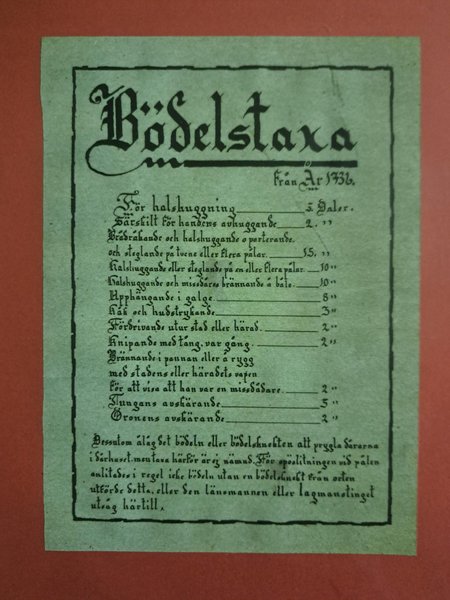 Bödelstaxa
från År 1736.
För halshuggning 5 Daler.
Särskilt för handens avhuggande 2. ”
Rådbråkande och halshuggande o parterande.
och steglande på tvene eller flera pålar. 15. ”
Halshuggande eller steglande på en eller flera pålar. 10 ”
Halshuggande och missdåres brännande å båle 10 ”
Upphängande i galge 8 ”
Kåk och hudstrykande 3 ”
Fördrivande utur stad eller härad. 2 ”
Knipande med tång, var gång. 2 ”
Brännande i pannan eller å rygg
med stadens eller häradets vapen
för att visa att han var en missdådare. 2 ”
Tungans avskärande 5 ”
Öronens avskärande 2 ”
Dessutom ålåg det bödeln eller bödelsknekten att prygla dårarna
i dårhuset, men taxa härför är ej nämnd. För spöslitningen vid pålen
anlitades i regel icke bödeln utan en bödelsknekt från orten
utförde detta, eller den länsmannen eller lagmanstinget
utsåg härtill.